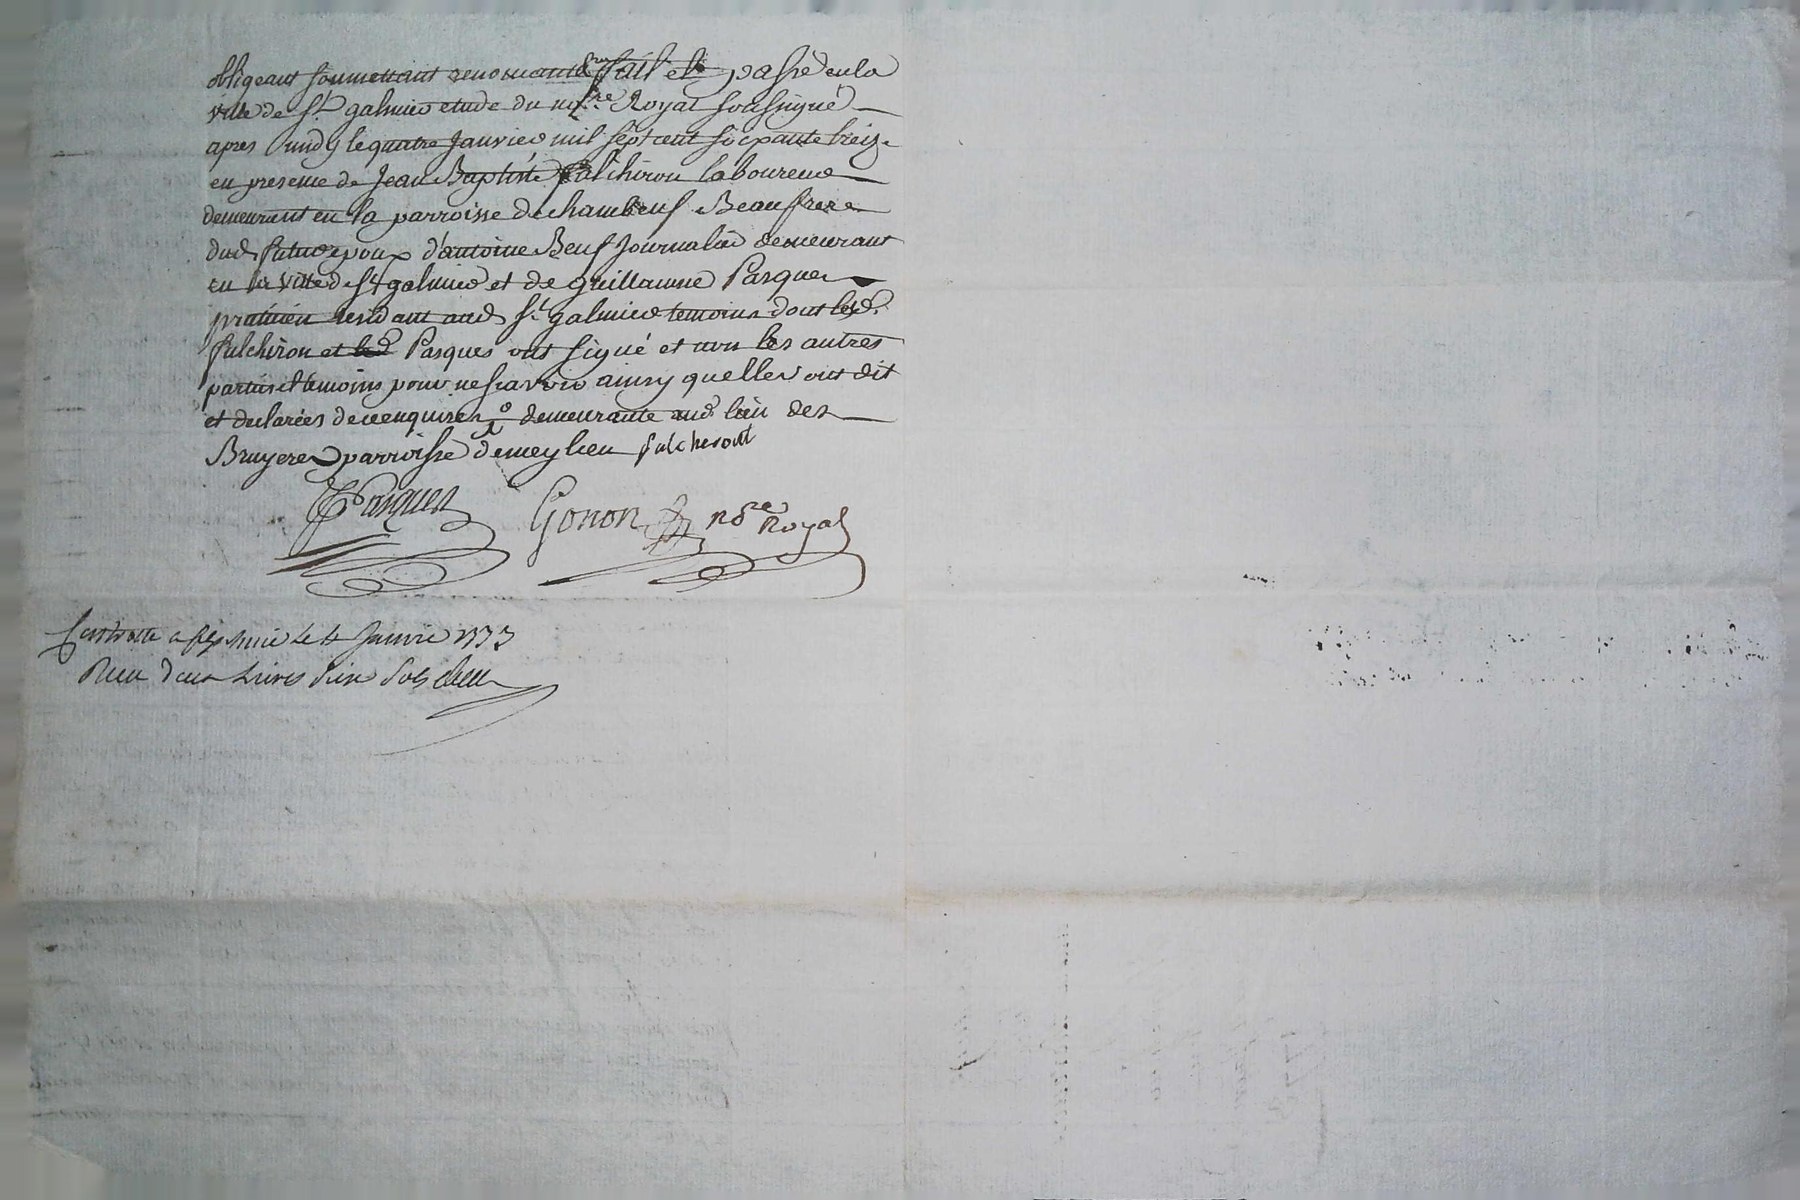 obligeant soumettant renonceant &c. fait et passé en la
ville de St galmier etude du no.re Royal soussigné
apres midy le quatre Janvier mil sept cent soixante treize
en presence de Jean Baptiste fulchiron laboureur
demeurant en la parroisse de chambeuf Beaufrere
dud. futur epoux d'antoine Beuf Journalier demeurant
en la ville de St galmier et de guillaume Pasques
praticien residant aud. St galmier temoins dont led.
fulchiron et led. Pasques ont signé et non les autres
parties et temoins pour ne sçavoir ainsy quelles ont dit
et declarées de ce enquises demeurante aud. lieu des
Bruyeres parroisse de meylieu fulcheront
Pasques Gonon no.re Royal
a St galmier le 4 Janvier 1773
Recu deux Livres Six Sols